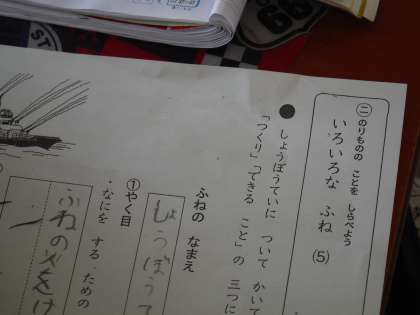 ㊁のりものの ことを しらべよう
いろいろな ふね (5)
●しょうぼうていに ついて かいて
「つくり」「できる こと」の 三つに
ふねの なまえ
しょうぼうて
①やく目
・なにを する ための
ふねの火をけ
ST